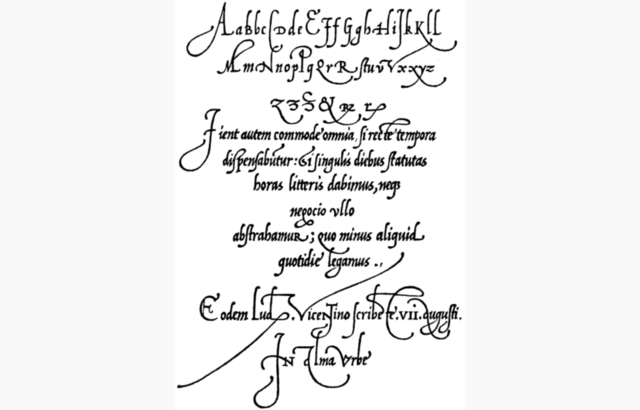 AaBbcCDdeEFfGghHiJkKlL
MmNnopPqQrRſtuvVxxyz
&
Fient autem commode omnia, ſi recte tempora
diſpenſabuntur: Et ſi ſingulis diebus ſtatutas
horas litteris dabimus, neqȝ
negocio vllo
abſtrahamuR; quo minus aliquid
quotidie legamus .,
Eodem Lud. VicenTino ſcribente .vii. Auguſti.
IN Alma Vrbe